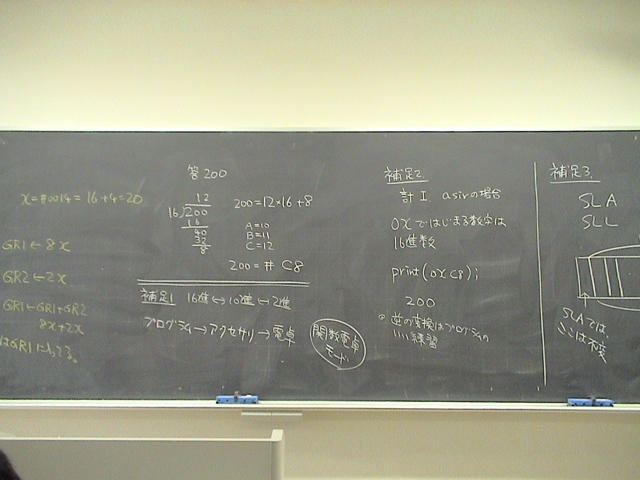 x = #0014 = 16+4 = 20
GR1 ← 8x
GR2 ← 2x
GR1 ← GR1+GR2
8x+2x
答 200
12
16)200
16
40
32
8
200 = 12*16+8
A=10
B=11
C=12
200 = # C8
補足1 16進 ↔ 10進 ↔ 2進
プログラム → アクセサリ → 電卓
関数電卓
モード
補足2.
計I. asirの場合
0xではじまる数字は
16進数
print(0xC8);
200
逆の変換はプログラムの
いい練習
補足3.
SLA
SLL
SLAでは
ここは不変